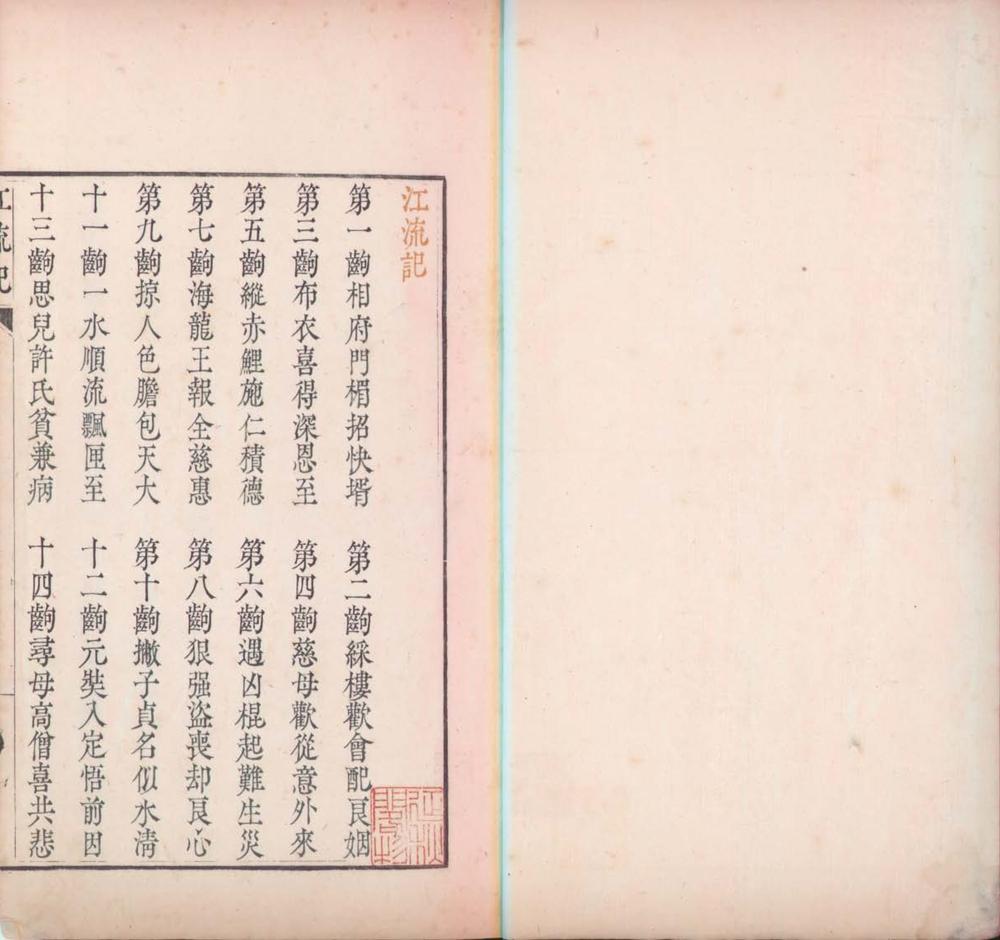 江流記
第一齣相府門楣招快壻 第二齣綵樓歡會配良姻
第三齣布衣喜得深恩至 第四齣慈母歡從意外來
第五齣縱赤鯉施仁積德 第六齣遇凶棍起難生災
第七齣海龍王報全慈惠 第八齣狠强盜喪却良心
第九齣掠人色膽包天大 第十齣撇子貞名似水清
十一齣一水順流飄匣至 十二齣元奘入定悟前因
十三齣思兒許氏貧兼病 十四齣尋母高僧喜共悲
江流記